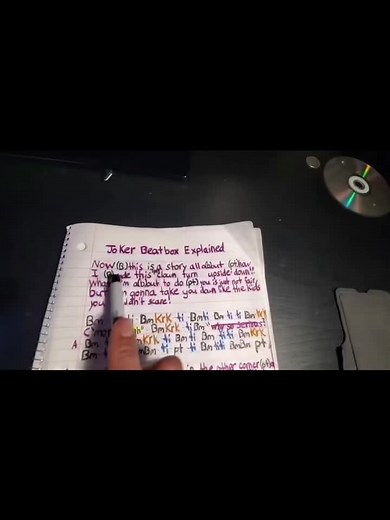 Joker Beatbox Explained
Now (B) this is a story all about (pt) how
I this clown turn upside down!
I'm about to do (pt) you is just not fair
gonna take you down like the kids
you scare!
Bm ti Bm KrK ti Bm ti Bm ti ti Bm KrK
Bm KrK ti Bm "why so serious?"
A Bm KrK ti Bm ti Bm titi Bm KrK
Bm Bm ti pt ti Bm titi BmBm pt
in the other corner (pt)